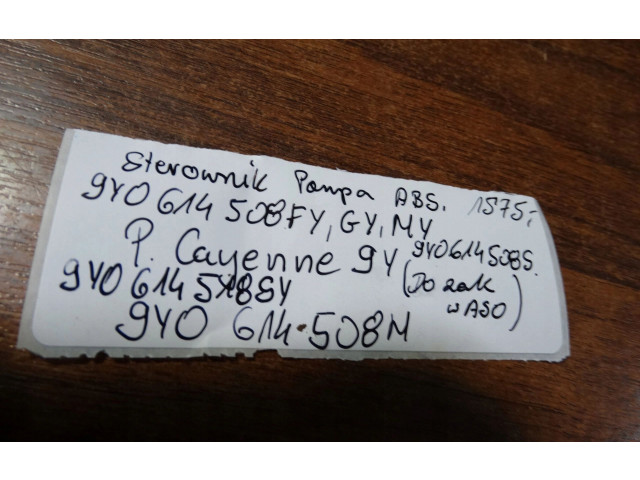 Sterownik Pompa ABS. 1575,-
9Y0 614 508FY, GY, MY
P. Cayenne 9Y 9Y0614508S.
9Y0 614 518SY (Do zak w ASO)
9Y0 614 508M